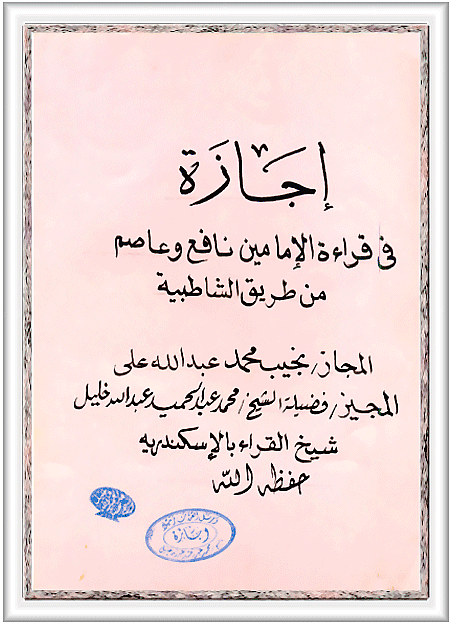 إجازة
فى قراءة الإمامين نافع وعاصم
من طريق الشاطبية
المجاز/ نجيب محمد عبد الله على
المجيز/ فضيلة الشيخ/ محمد عبد الحميد عبد الله خليل
شيخ القراء بالإسكندريه
حفظه الله
إجازة